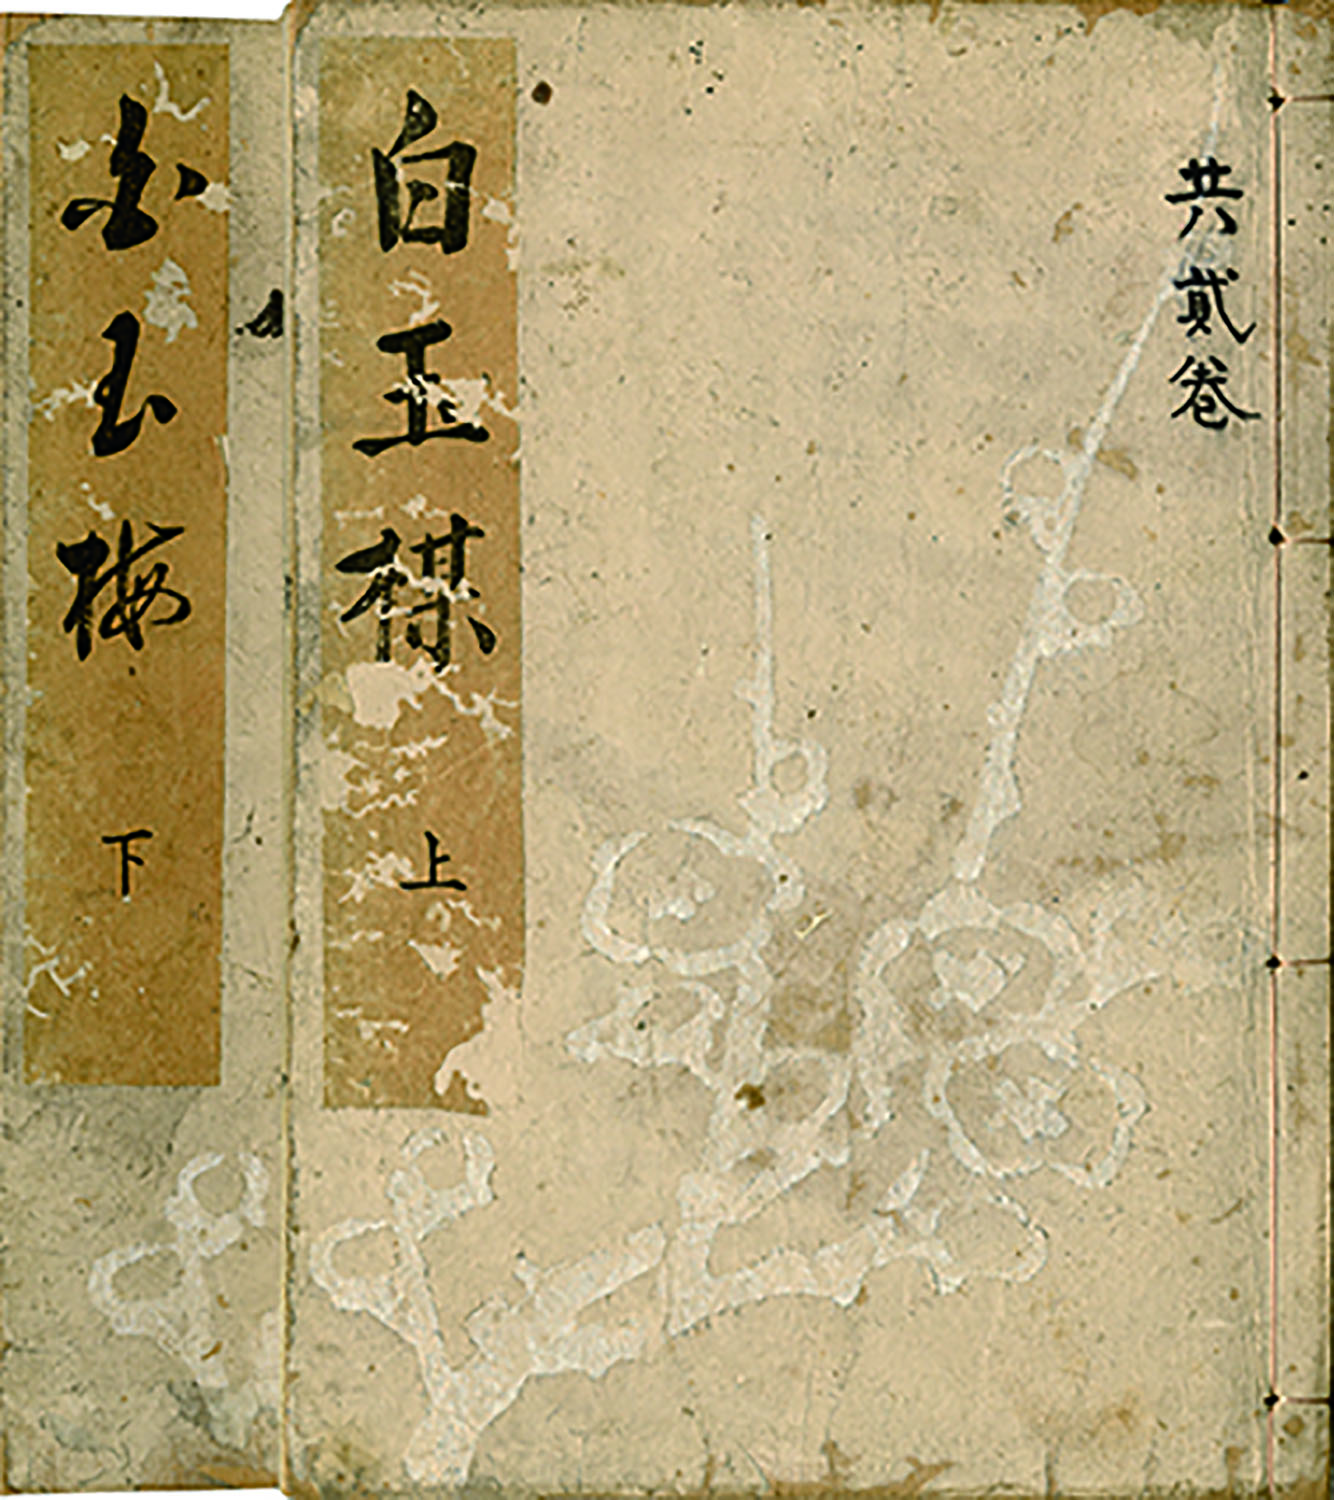 共貳卷
白玉楳 上
玉梅 下